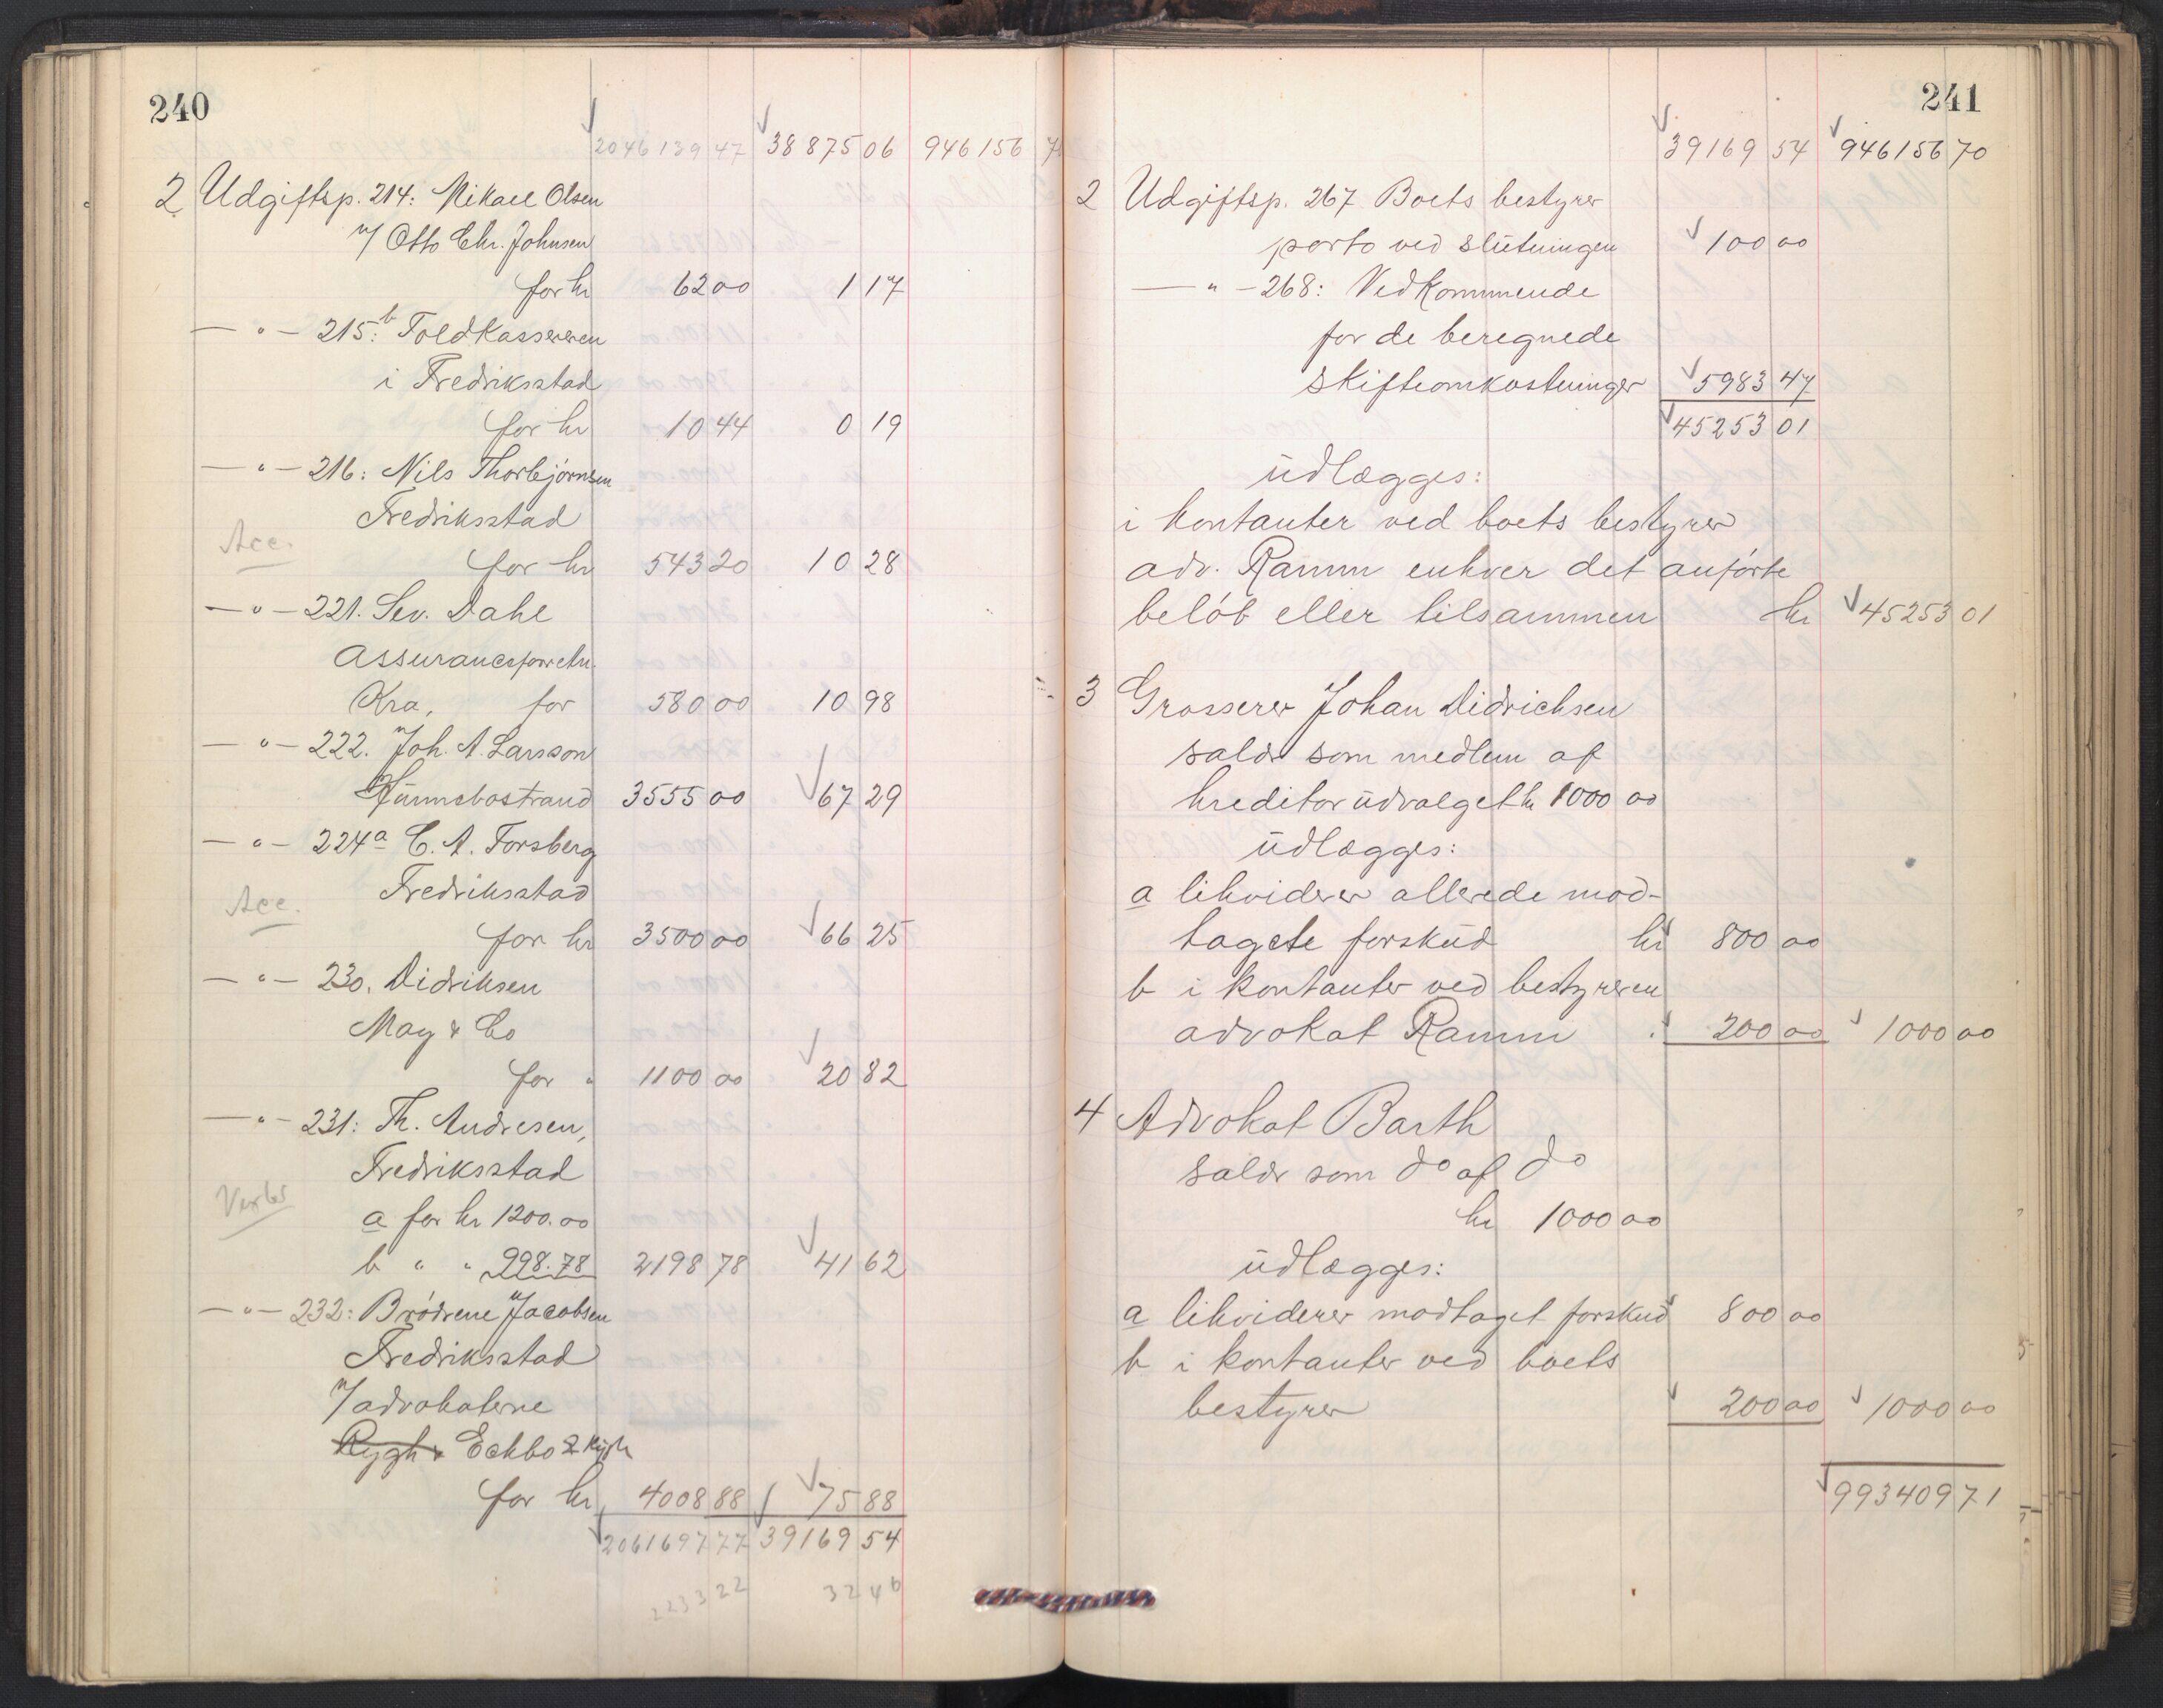 240
2046139 47 38875 06 946156 7
2 Udgiftsp. 214: Mikael Olsen
v/ Otto Chr. Johnsen
for kr 62 00 1 17
— " — 215:b Toldkassereren
i Fredriksstad
for kr 10 44 0 19
— " — 216: Nils Thorbjørnsen
Fredriksstad
Acc.
for kr 543 20 10 28
— " — 221. Sev. Dahl
Assurancsforretn.
Kra, for 580 00 10 98
— " — 222. Joh. A. Larsson
Hunnebostrand 3555 00 67 29
— " — 224a C. A. Forsberg
Fredriksstad
Acc.
for kr 3500 00 66 25
— " — 230. Didriksen
May & Co
for " 1100 00 20 82
— " — 231: Th. Andresen,
Fredriksstad
Verks
a for kr 1200.00
b " " 998.78 2198 78 41 62
— " — 232: Brødrene Jacobsen
Fredriksstad
v/ advokaterne
Rygh & Eckbo & Rygh
for kr 4008 88 75 88
2061697 77 39169 54
2233 22 32 46
241
39169 54 946156 70
2 Udgiftsp. 267 Boets bestyrer
porto ved slutningen 100 00
— " — 268: Vedkommende
for de beregnede
skifteomkostninger 5983 47
45253 01
udlægges:
i kontanter ved boets bestyrer
adv. Ramm enhver det anførte
beløb eller tilsammen kr 45253 01
3 Grosserer Johan Didrichsen
salær som medlem af
kreditorudvalget kr 1000 00
udlægges:
a likviderer allerede mod-
tagete forskud kr 800 00
b i kontanter ved bestyreren
advokat Ramm " 200 00 1000 00
4 Advokat Barth
salær som do af do
kr 1000 00
udlægges:
a likviderer modtaget forskud 800 00
b i kontanter ved boets
bestyrer 200 00 1000 00
993409 71